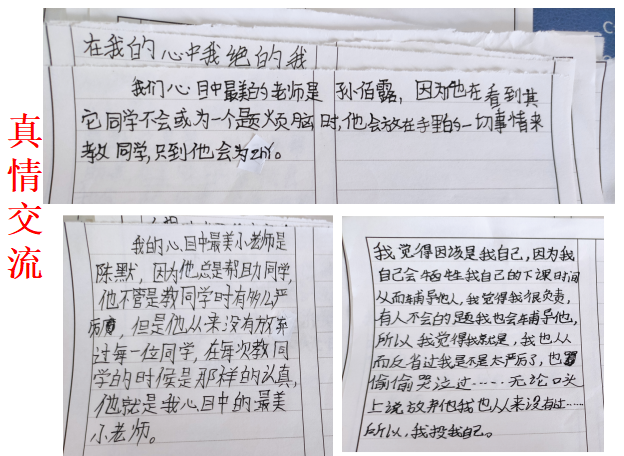 真情交流
在我的心中我绝的我
我们心目中最美的老师是 孙佰露，因为他在看到其
它同学不会或为一个题烦脑时，他会放在手里的一切事情来
教同学，只到他会为止。
我的心目中最美小老师是
陈默，因为他总是帮助同学，
他不管是教同学时有多么严
但是他从来没有放弃
过每一位同学，在每次教同
学的时候是那样的认真，
他就是我心目中的最美
小老师。
我觉得因该是我自己，因为我
自己会牺牲我自己的下课时间
从而辅导他人，我觉得我很负责，
有人不会的题我也会辅导他，
所以我觉得我就是，我也从
而反省过我是不是太严厉了，也
偷偷哭泣过……无论口头
上说放弃他我也从来没有过……
所以，我投我自己。